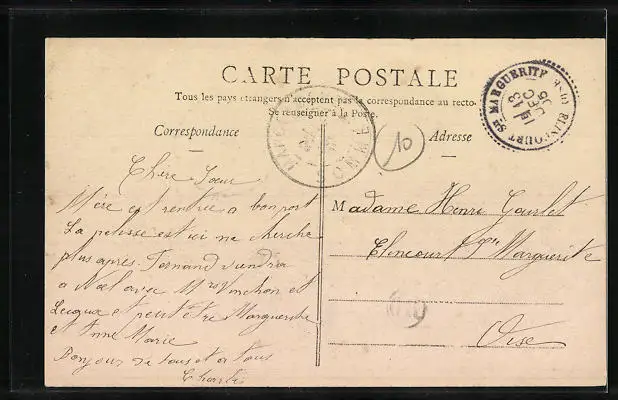 CARTE POSTALE
Tous les pays étrangers n'acceptent pas la correspondance au recto.
Se renseigner à la Poste.
Correspondance
Adresse
Chère Sœur
Mère est rentrée a bon port
La pelisse est ici ne cherche
plus après. Fernand viendra
a Noël avec Mr Vinchon et
et peut être Marguerite
et Anne Marie
Bonjour de tous et a tous
Charles
Madame Henri Gourlet
Elincourt Ste Marguerite
Oise
10
ELINCOURT STE MARGUERITE
13
DEC
05
SOMME